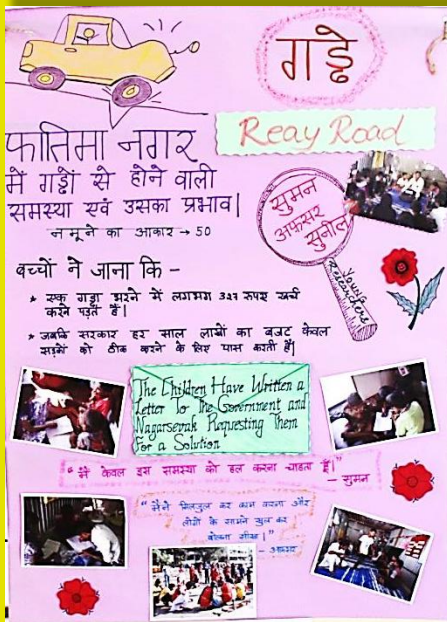 गड्ढे
Reay Road
फातिमा नगर
में गड्ढों से होने वाली
समस्या एवं उसका प्रभाव|
नमूने का आकार → 50
सुमन
अफसर
सुनील
Young
Researchers
बच्चों ने जाना कि –
* एक गड्ढा भरने में लगभग 327 रुपए खर्च
करने पड़ते हैं|
* जबकि सरकार हर साल लाखों का बजट केवल
सड़कों को ठीक करने के लिए पास करती हैं|
The Children Have Written a
Letter To The Government and
Nagarsevak Requesting Them
For a Solution
"मैं केवल इस समस्या को हल करना चाहता हूँ|"
– सुमन
"मैंने मिलजुल कर काम करना और
लोगों के सामने खुल कर
बोलना सीखा|"